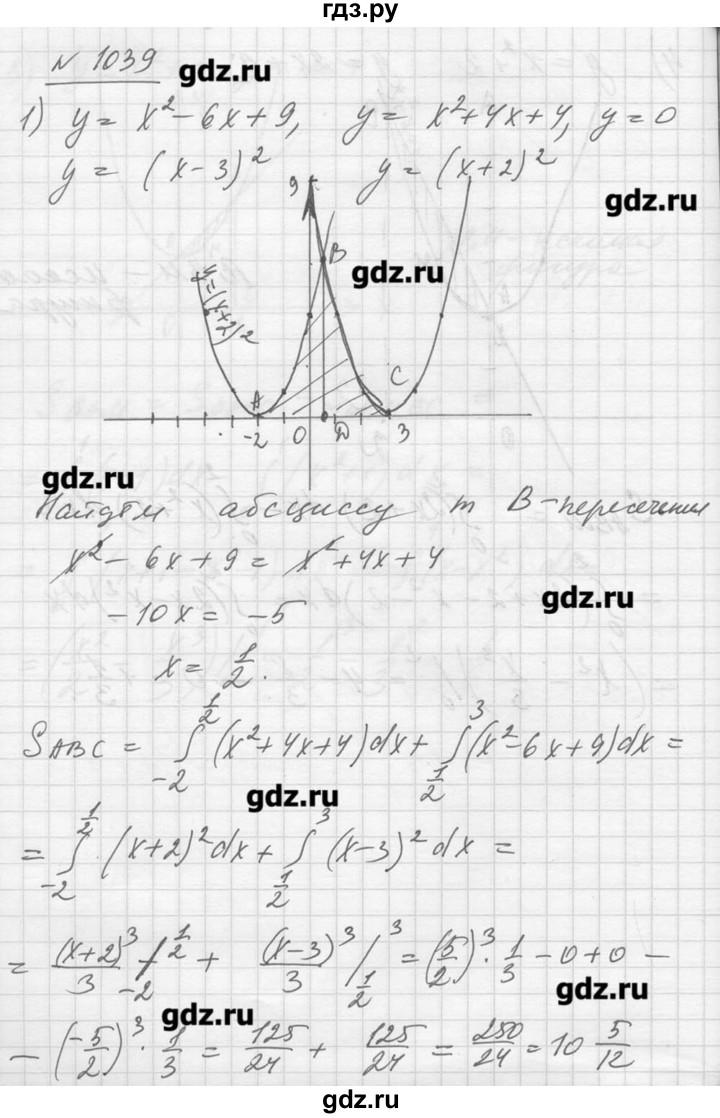 гдз.ру
№ 1039
gdz.ru
1) y = x² - 6x + 9, y = x² + 4x + 4, y = 0
y = (x - 3)² y = (x + 2)²
gdz.ru
9
B
gdz.ru
y = (x+2)²
A C
-2 0 D 3
gdz.ru
Найдём абсциссу т В - пересечения
x² - 6x + 9 = x² + 4x + 4
gdz.ru
-10x = -5
x = 1/2.
S ABC = ∫_{-2}^{1/2} (x² + 4x + 4)dx + ∫_{1/2}^{3} (x² - 6x + 9)dx =
gdz.ru
= ∫_{-2}^{1/2} (x+2)² dx + ∫_{1/2}^{3} (x-3)² dx =
= (x+2)³/3 |_{-2}^{1/2} + (x-3)³/3 |_{1/2}^{3} = (5/2)³ · 1/3 - 0 + 0 -
gdz.ru
gdz.ru
- (-5/2)³ · 1/3 = 125/24 + 125/24 = 250/24 = 10 5/12
gdz.ru